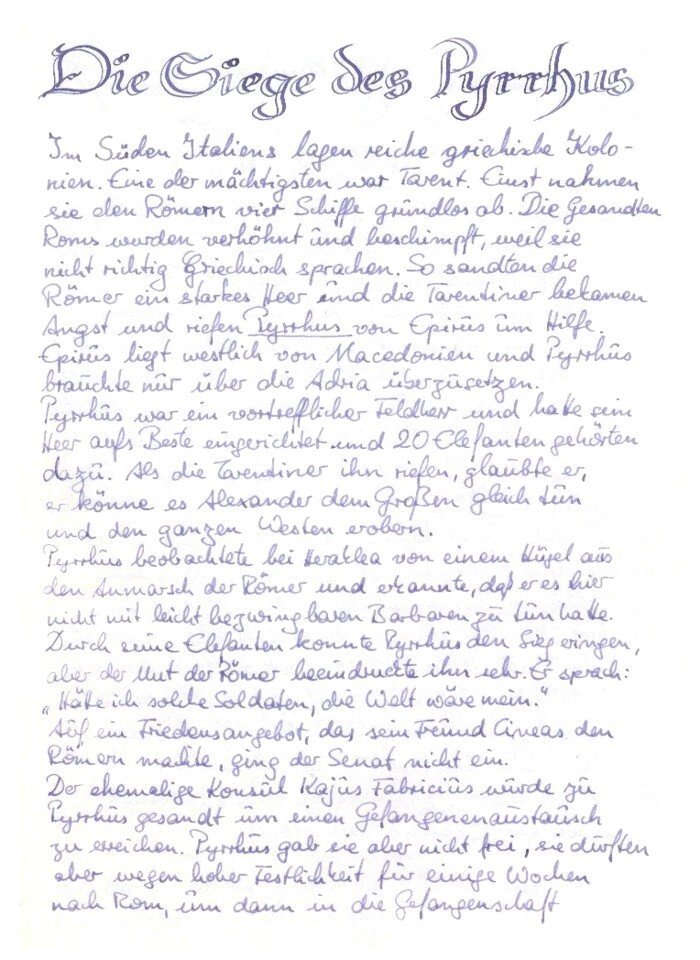 Die Siege des Pyrrhus
Im Süden Italiens lagen reiche griechische Kolo-
nien. Eine der mächtigsten war Tarent. Einst nahmen
sie den Römern vier Schiffe grundlos ab. Die Gesandten
Roms wurden verhöhnt und beschimpft, weil sie
nicht richtig Griechisch sprachen. So sandten die
Römer ein starkes Heer und die Tarentiner bekamen
Angst und riefen Pyrrhus von Epirus um Hilfe.
Epirus liegt westlich von Macedonien und Pyrrhus
brauchte nur über die Adria überzusetzen.
Pyrrhus war ein vortrefflicher Feldherr und hatte sein
Heer aufs Beste eingerichtet und 20 Elefanten gehörten
dazu. Als die Tarentiner ihn riefen, glaubte er,
er könne es Alexander dem Großen gleich tun
und den ganzen Westen erobern.
Pyrrhus beobachtete bei Heraklea von einem Hügel aus
den Anmarsch der Römer und erkannte, daß er es hier
nicht mit leicht bezwingbaren Barbaren zu tun hatte.
Durch seine Elefanten konnte Pyrrhus den Sieg eringen,
aber der Mut der Römer beeindruckte ihn sehr. Er sprach:
„Hätte ich solche Soldaten, die Welt wäre mein."
Auf ein Friedensangebot, das sein Freund Cineas den
Römern machte, ging der Senat nicht ein.
Der ehemalige Konsul Kajus Fabricius wurde zu
Pyrrhus gesandt um einen Gefangenenaustausch
zu erreichen. Pyrrhus gab sie aber nicht frei, sie durften
aber wegen hoher Festlichkeit für einige Wochen
nach Rom, um dann in die Gefangenschaft